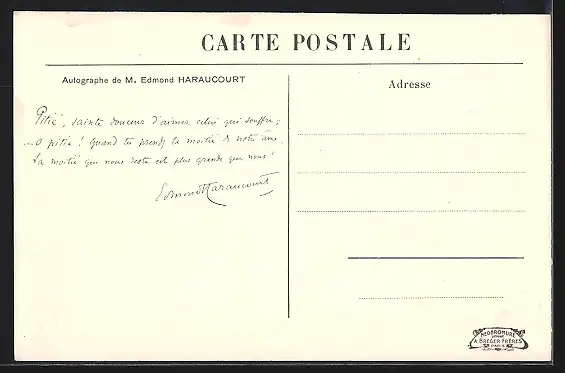 CARTE POSTALE
Autographe de M. Edmond HARAUCOURT
Adresse
Pitié, sainte douceur d'aimer celui qui souffre ;
— O pitié ! Quand tu prends la moitié de notre âme,
La moitié qui nous reste est plus grande que nous !
Edmond Haraucourt
NEOBROMURE
A. BREGER FRÈRES
PARIS